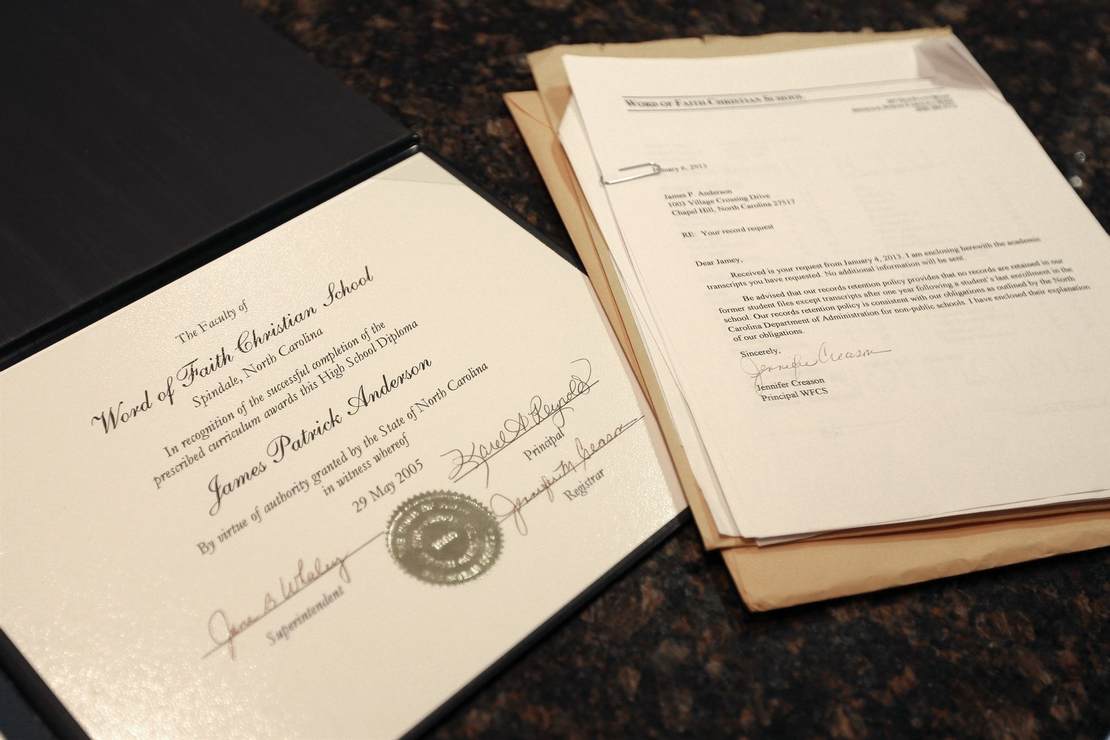 The Faculty of
Word of Faith Christian School
Spindale, North Carolina
In recognition of the successful completion of the
prescribed curriculum awards this High School Diploma
James Patrick Anderson
By virtue of authority granted by the State of North Carolina
in witness whereof
29 May 2005
Karel A Reynolds
Principal
Jennifer Creason
Registrar
Jane B Whaley
Superintendent
WORD OF FAITH CHRISTIAN SCHOOL
January 6, 2013
James P. Anderson
1003 Village Crossing Drive
Chapel Hill, North Carolina 27517
RE: Your record request
Dear Jamey,
Received is your request from January 4, 2013. I am enclosing herewith the academic
transcripts you have requested. No additional information will be sent.
Be advised that our records retention policy provides that no records are retained in our
former student files except transcripts after one year following a student's last enrollment in the
school. Our records retention policy is consistent with our obligations as outlined by the North
Carolina Department of Administration for non-public schools. I have enclosed their explanation
of our obligations.
Sincerely,
Jennifer Creason
Jennifer Creason
Principal WFCS